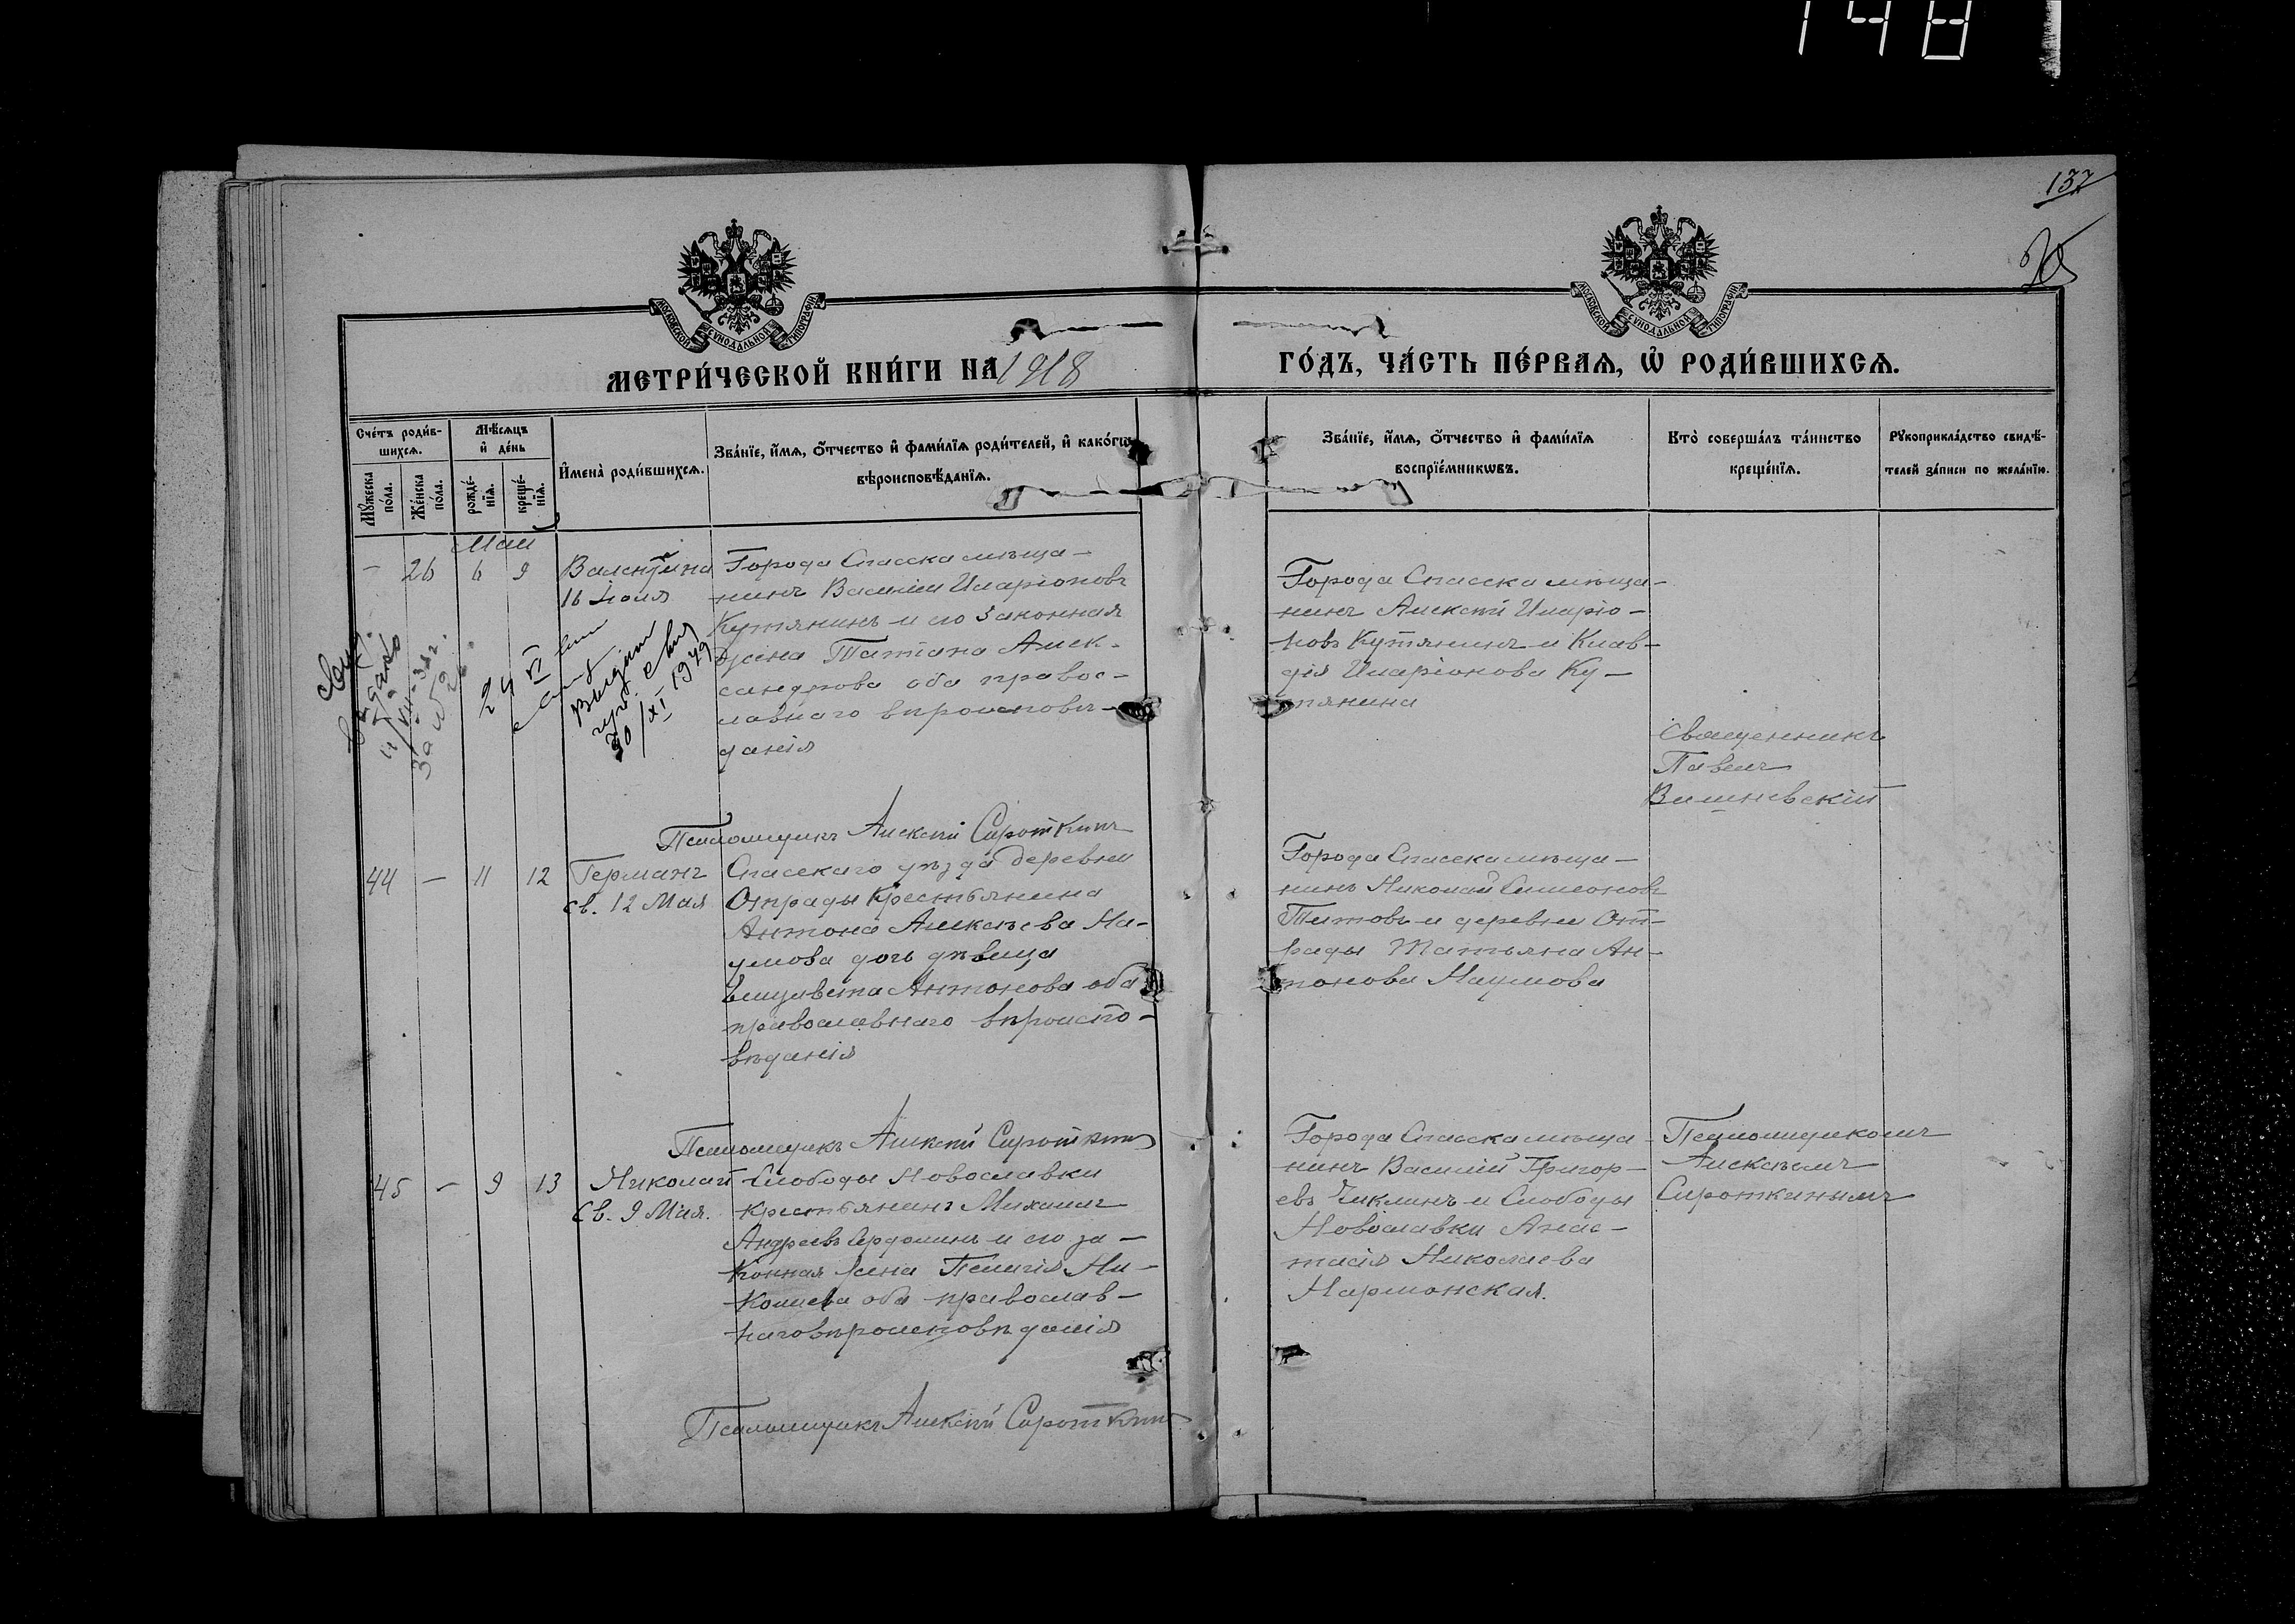 148
137
МОСКОВСКОЙ СѴНОДАЛЬНОЙ ТИПОГРАФІИ
МОСКОВСКОЙ СѴНОДАЛЬНОЙ ТИПОГРАФІИ
МЕТРИ́ЧЕСКОЙ КНИ́ГИ НА 1918
ГО́ДЪ, ЧА́СТЬ ПЕ́РВАѦ, Ѽ РОДИ́ВШИХСѦ.
Сче́тъ роди́в-
шихсѧ.
Мѣ́сѧцъ
и҆ де́нь
Мꙋ́жеска
по́ла.
Же́нска
по́ла.
рожде́-
нїѧ.
креще́-
нїѧ.
И҆мена̀ роди́вшихсѧ.
Зва́нїе, и҆́мѧ, ѻ҆́тчество и҆ фами́лїѧ роди́телей, и҆ како́гѡ
вѣроисповѣ́данїѧ.
Зва́нїе, и҆́мѧ, ѻ҆́тчество и҆ фами́лїѧ
воспрїе́мникѡвъ.
Кто̀ соверша́лъ та́инство
креще́нїѧ.
Рꙋкоприкла́дство свидѣ́-
телей за́писи по жела́нїю.
Май
- 26 6 9 Валентина
16 Іюля
Города Спасска мѣща-
нинъ Василій Иларіоновъ
Кутянинъ и его законная
жена Татіана Алек-
сандрова оба правос-
лавнаго вѣроисповѣ-
данія
Города Спасска мѣща-
нинъ Алексѣй Иларіо-
новъ Кутянинъ и Клав-
дія Иларіонова Ку-
тянина
Священникъ
Павелъ
Вишневскій
выдано
за №
24 VI
Выдан
30/XI 1949
Псаломщикъ Алексѣй Сироткинъ
44 - 11 12 Германъ
Св. 12 Мая
Спасскаго уѣзда деревни
Отрады Крестьянина
Антона Алексѣева На-
умова дочь дѣвица
Елизавета Антонова оба
православнаго вѣроиспо-
вѣданія
Города Спасска мѣща-
нинъ Николай Симеоновъ
Титовъ и деревни От-
рады Татьяна Ан-
тонова Наумова
Псаломщикъ Алексѣй Сироткинъ
45 - 9 13 Николай
Св. 9 Мая.
Слободы Новославки
крестьянинъ Михаилъ
Андреевъ Сердоминъ и его за-
конная жена Пелагія Ни-
колаева оба православ-
наго вѣроисповѣданія
Города Спасска мѣща-
нинъ Василій Григор-
евъ Чиклинъ и Слободы
Новославки Анас-
тасія Николаева
Нармонская.
Псаломщикомъ
Алексѣемъ
Сироткинымъ
Псаломщикъ Алексѣй Сироткинъ